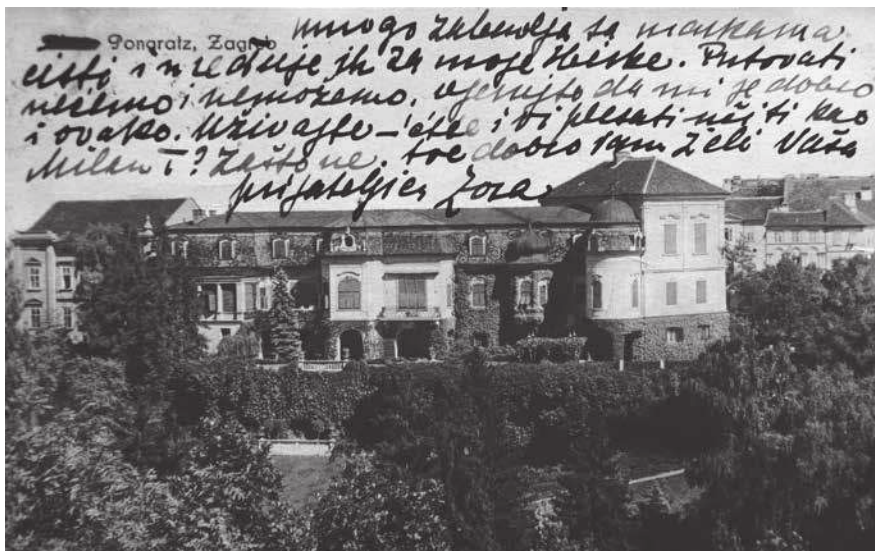 Pongratz, Zagreb
mnogo zabavlja sa markama
čisti i uredjuje jih za moje
Putovati
nećemo i nemožemo, vjerujte da mi je dobro
i ovako. Uživajte - i Vi plesati kao
Milan T? Zašto ne. Sve dobro Vam želi Vaša
prijateljica Zora